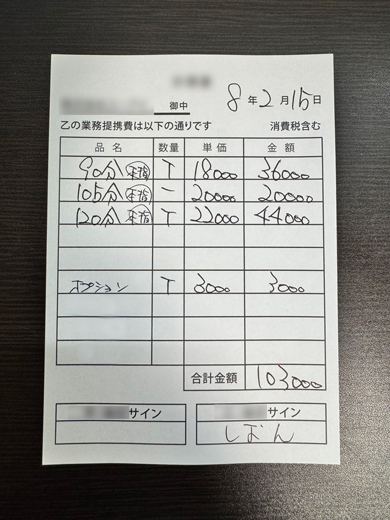 御中
8年2月15日
乙の業務提携費は以下の通りです 消費税含む
品名 数量 単価 金額
90分 本指 T 18000 36000
105分 本指 一 20000 20000
120分 本指 T 22000 44000
オプション T 3000 3000
合計金額 103000
サイン サイン
しおん